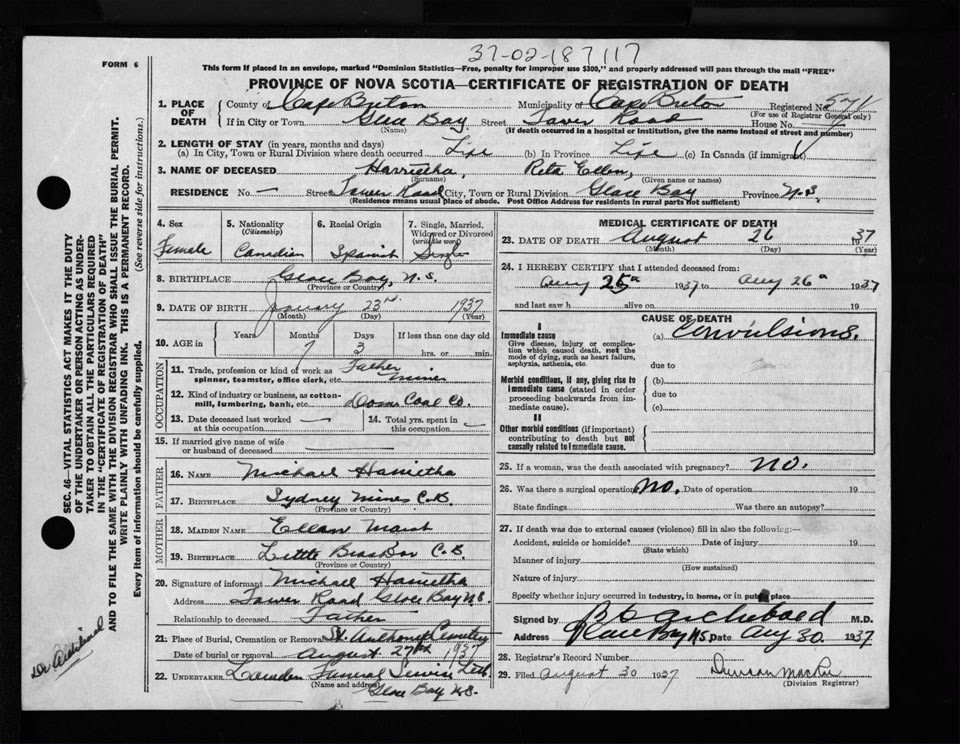 37-02-187117
FORM 6
This form if placed in an envelope, marked "Dominion Statistics—Free, penalty for improper use $300," and properly addressed will pass through the mail "FREE"
PROVINCE OF NOVA SCOTIA—CERTIFICATE OF REGISTRATION OF DEATH
1. PLACE OF DEATH County of Cape Breton Municipality of Cape Breton Registered No. 571
(For use of Registrar General only)
If in City or Town Glace Bay Street Tower Road House No.
(Name) (If death occurred in a hospital or institution, give the name instead of street and number)
2. LENGTH OF STAY (in years, months and days)
(a) In City, Town or Rural Division where death occurred Life (b) In Province Life (c) In Canada (if immigrant)
3. NAME OF DECEASED Harrietha, Rita Ellen,
(Surname) (Given name or names)
RESIDENCE No. — Street Tower Road City, Town or Rural Division Glace Bay Province N.S
(Residence means usual place of abode. Post Office Address for residents in rural parts not sufficient)
4. Sex Female
5. Nationality (Citizenship) Canadian
6. Racial Origin Spanish
7. Single, Married, Widowed or Divorced (write the word) Single
8. BIRTHPLACE Glace Bay, N.S.
(Province or Country)
9. DATE OF BIRTH January 23rd. 1937
(Month) (Day) (Year)
10. AGE in Years Months 7 Days 3 If less than one day old
hrs. or min.
OCCUPATION
11. Trade, profession or kind of work as spinner, teamster, office clerk, etc. Father miner
12. Kind of industry or business, as cotton-mill, lumbering, bank, etc. Dom Coal Co.
13. Date deceased last worked at this occupation —
14. Total yrs. spent in this occupation —
15. If married give name of wife or husband of deceased —
FATHER
16. NAME Michael Harrietha
17. BIRTHPLACE Sydney Mines C.B.
(Province or Country)
MOTHER
18. MAIDEN NAME Ellen
19. BIRTHPLACE Little Bras Dor C.B.
(Province or Country)
20. Signature of informant Michael Harrietha
Address Tower Road Glace Bay N.S.
Relationship to deceased Father
21. Place of Burial, Cremation or Removal St. Anthony Cemetery
Date of burial or removal August 27th 1937
22. UNDERTAKER Funeral Service Ltd.
(Name and address) Glace Bay N.S.
MEDICAL CERTIFICATE OF DEATH
23. DATE OF DEATH August 26 1937
(Month) (Day) (Year)
24. I HEREBY CERTIFY that I attended deceased from:
Aug 25th 1937 to Aug 26th 1937
and last saw h alive on 19
CAUSE OF DEATH
I
Immediate cause (a) Convulsions.
Give disease, injury or complication which caused death, not the mode of dying, such as heart failure, asphyxia, asthenia, etc.
due to
Morbid conditions, if any, giving rise to immediate cause (stated in order proceeding backwards from immediate cause).
(b)
due to
(c)
II
Other morbid conditions (if important) contributing to death but not causally related to immediate cause.
25. If a woman, was the death associated with pregnancy? no.
26. Was there a surgical operation? no. Date of operation 19
State findings Was there an autopsy?
27. If death was due to external causes (violence) fill in also the following:—
Accident, suicide or homicide? Date of injury 19
(State which)
Manner of injury
(How sustained)
Nature of injury
Specify whether injury occurred in industry, in home, or in public place
Signed by Archibald M.D.
Address Glace Bay N.S. Date Aug 30 1937
28. Registrar's Record Number
29. Filed August 30 1937 Duncan MacRae
(Division Registrar)
SEC. 46—VITAL STATISTICS ACT MAKES IT THE DUTY
OF THE UNDERTAKER OR PERSON ACTING AS UNDER-
TAKER TO OBTAIN ALL THE PARTICULARS REQUIRED
IN THE "CERTIFICATE OF REGISTRATION OF DEATH"
AND TO FILE THE SAME WITH THE DIVISION REGISTRAR WHO SHALL ISSUE THE BURIAL PERMIT.
WRITE PLAINLY WITH UNFADING INK. THIS IS A PERMANENT RECORD.
Every item of information should be carefully supplied. (See reverse side for instructions.)
Dr Archibald